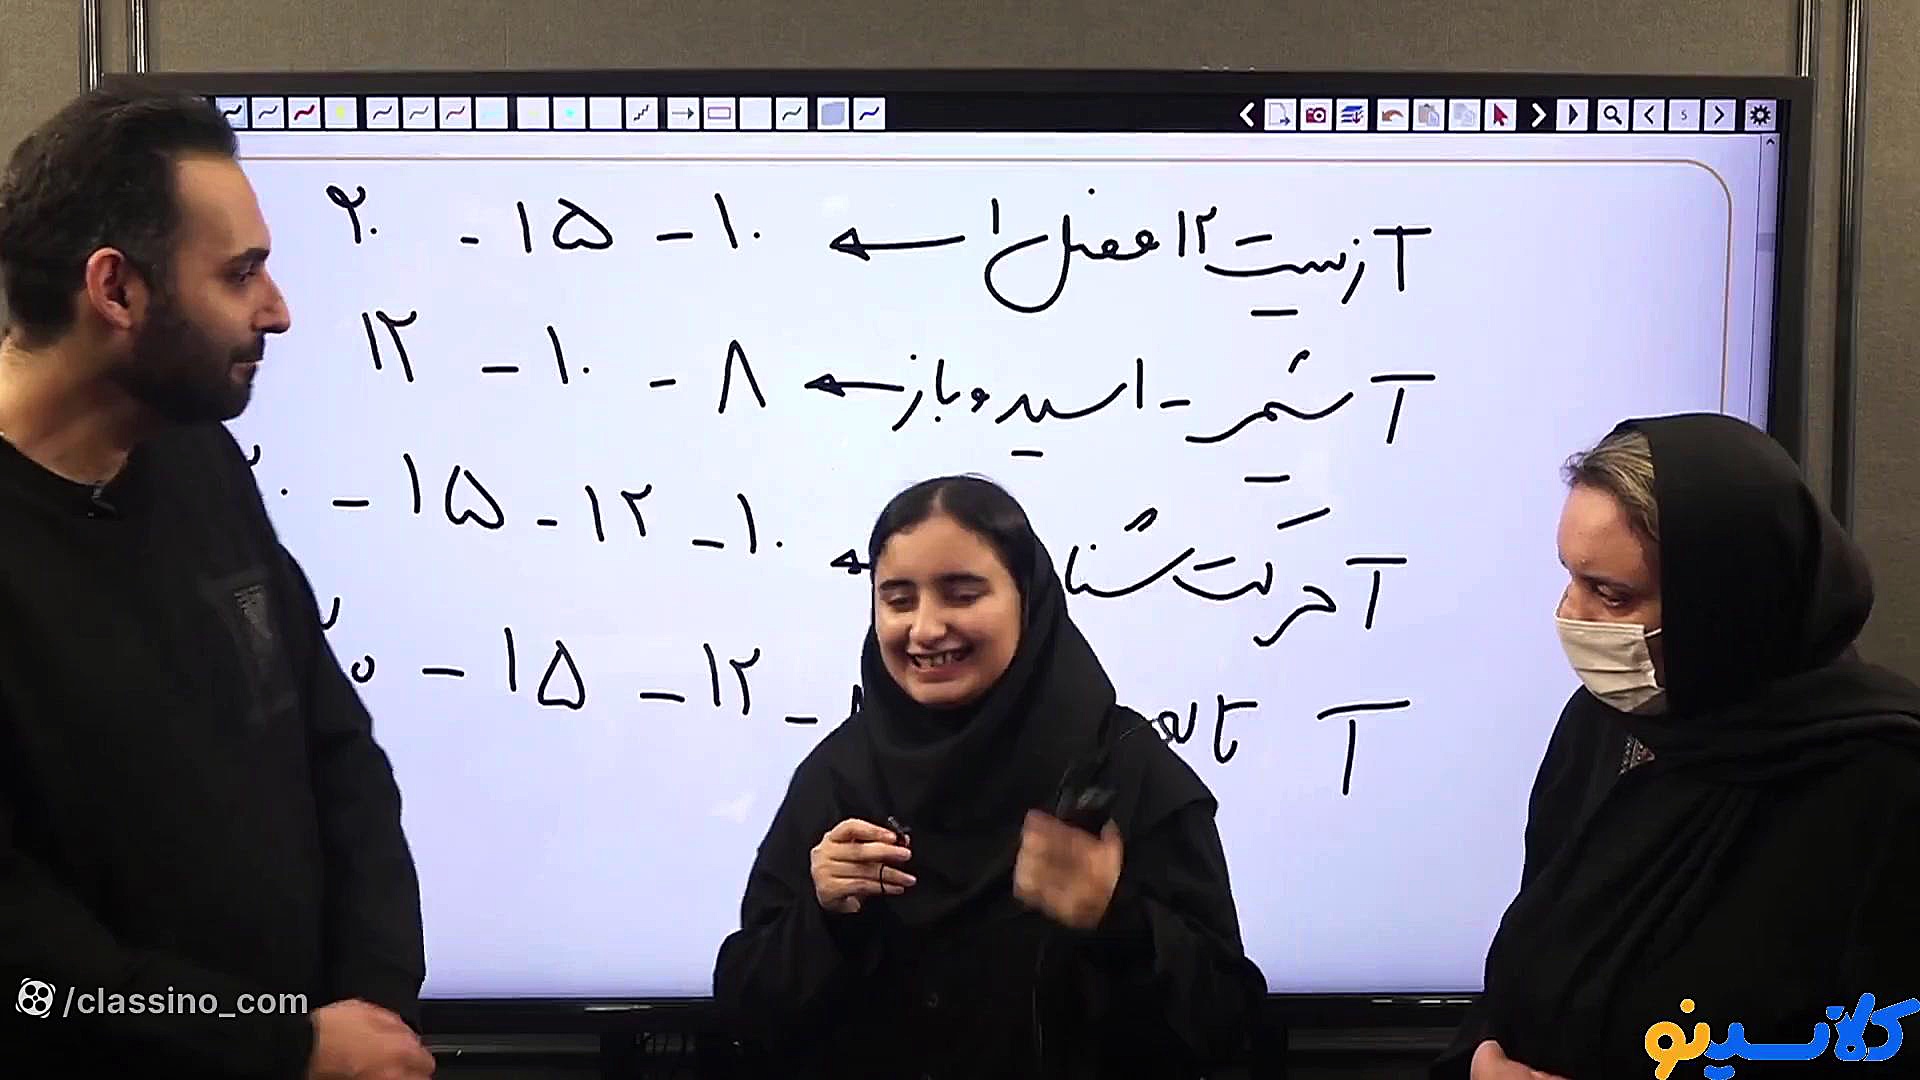 T زیست ۱۲ فصل ۱ ← ۱۰ - ۱۵ - ۲۰
T شیمی - اسید و باز ← ۸ - ۱۰ - ۱۲
T حرکت شنا ← ۱۰ - ۱۲ - ۱۵ -
T تا - ۱۲ - ۱۵ -
5
/classino_com
کلاسینو